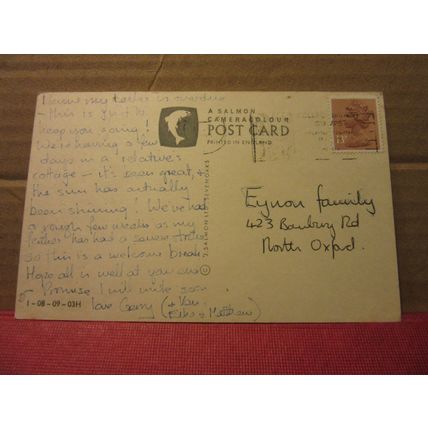 I know my letter is overdue
– this is just to
keep you going!
We're having a few
days in a relative's
cottage – it's been great, &
the sun has actually
been shining! We've had
a rough few weeks as my
father has had a severe stroke
so this is a welcome break.
Hope all is well at your end
– Promise I will write soon.
love Gerry (+ Ken,
& Matthew)
1-08-09-03H
A SALMON
CAMERACOLOUR
POST CARD
PRINTED IN ENGLAND
J. SALMON LTD. SEVENOAKS ©
Eynon family
423 Banbury Rd
North Oxford.